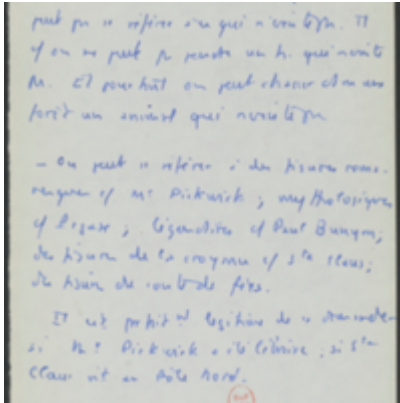 peut pas se référer à ce qui n'existe pas. Et
on ne peut pas pendre un h. qui n'existe
pas. Et pourtant on peut chasser dans une
forêt un animal qui n'existe pas
– On peut se référer à des figures roma-
nesques cf Mr Pickwick ; mythologiques
cf Pegase ; légendaires cf Paul Bunyan ;
des figures de la croyance cf Sta Claus ;
des figures de conte de fées.
Il est parfait legitime de se demander
si Mr Pickwick a été célibataire, si Sta
Claus vit au Pôle Nord.